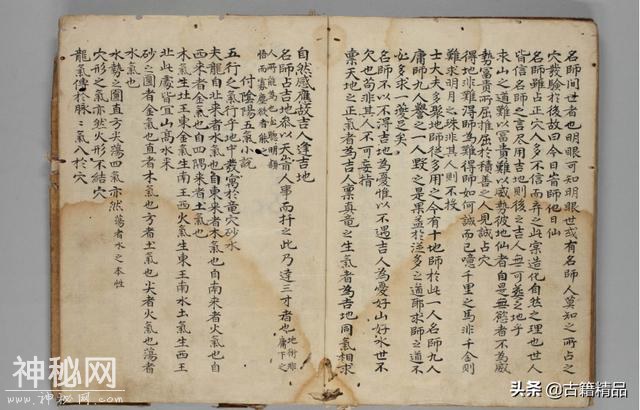 名師間世者也明眼可知明眼世或有名師人莫知之所占之
穴發驗於後故曰今日盲師他日仙
名師雖占正穴人多不信而弃之此宗造化自然之理也世人
皆信名師之言尽用吉地則後之吉人毋可葬之地乎
求山之道難以富貴難以威勢彼地仙者自是無慾者不為威
勢富貴所屈推屈於積善之人見誠占穴
得地非難得師為難得師如何誠而已噫千里之馬非千金則
難求明月之珠非其人則不授
士大夫多聚地師從多用之今有十地師於此一人名師九人
庸師九人譽之一人毀之是果益於從多之道耶求師之道
名師不以不得吉地為憂惟以不遇吉人為憂好山好水世不
欠也苟非其人不可妄指
稟天地之正氣者為吉人稟真竜之生氣者為吉地同氣相求
自然感應故吉人逢吉地
名師占吉地叅以天㫖人事而扦之此乃達三才者也
付陰陽五氣小說
五行之氣行乎地中發寓於竜穴砂水
夫龍自北來者水氣也自東來者木氣也自南來者火氣也自
西來者金氣也自四隅來者土氣也
木氣生北王東金氣生南王西火氣生東王南水土氣生西王
北此處皆宜山高水來
砂之圓者金氣也直者木氣也方者土氣也尖者火氣也蕩者
水氣也
水勢之圓直方尖蕩四氣亦然 蕩者水之本性
穴形之氣亦然火形不結穴
龍氣傳於脉脉氣八於穴
神秘网
WWW.
头条 @古籍精品